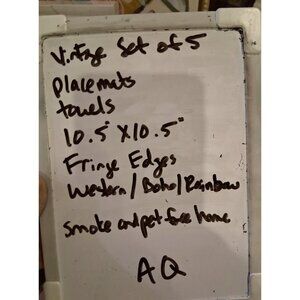 Vintage Set of 5
placemats
towels
10.5" X 10.5"
Fringe Edges
Western/Boho/Rainbow
smoke and pet free home
AQ